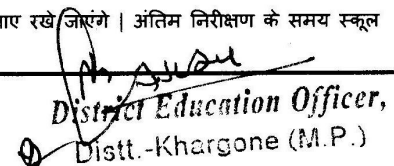 ाए रखे जाएंगे | अंतिम निरीक्षण के समय स्कूल
District Education Officer,
Distt.-Khargone (M.P.)